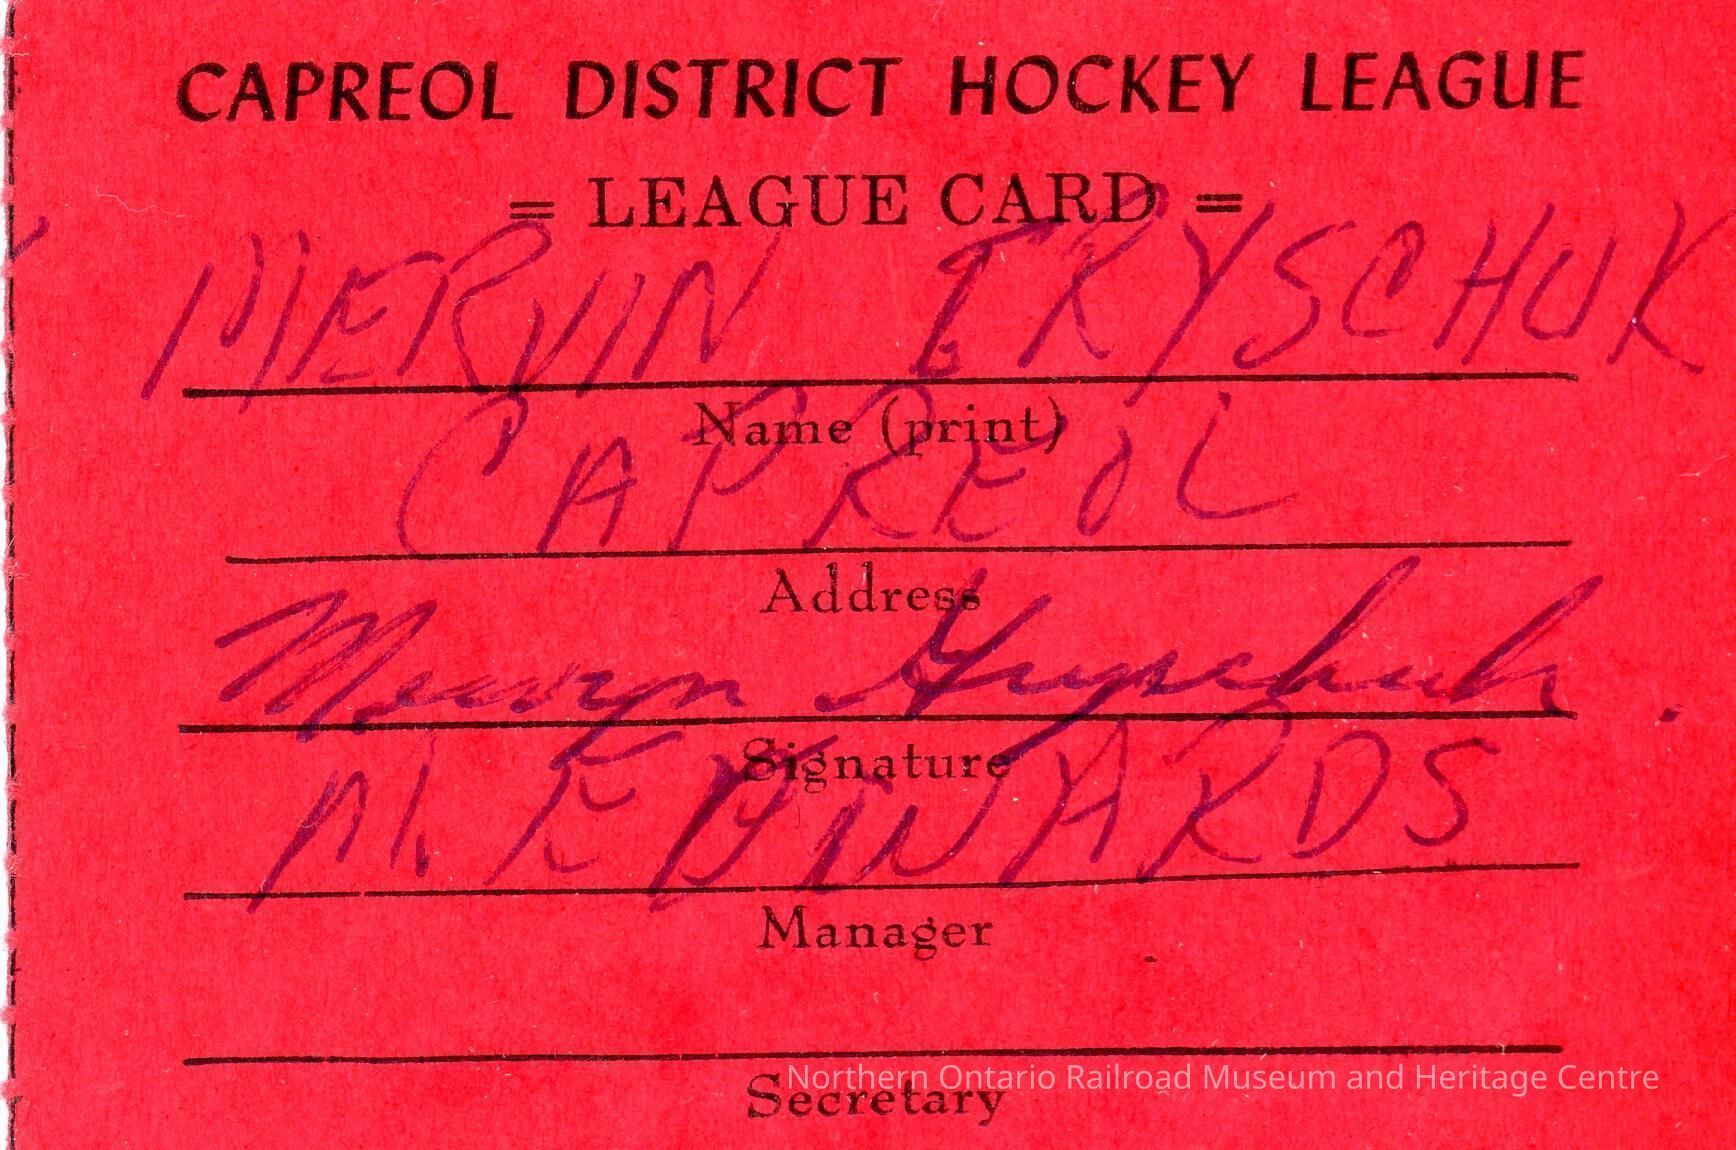 CAPREOL DISTRICT HOCKEY LEAGUE
= LEAGUE CARD =
MERVIN
Name (print)
CAPREOL
Address
Signature
M. EDWARDS
Manager
Secretary
Northern Ontario Railroad Museum and Heritage Centre